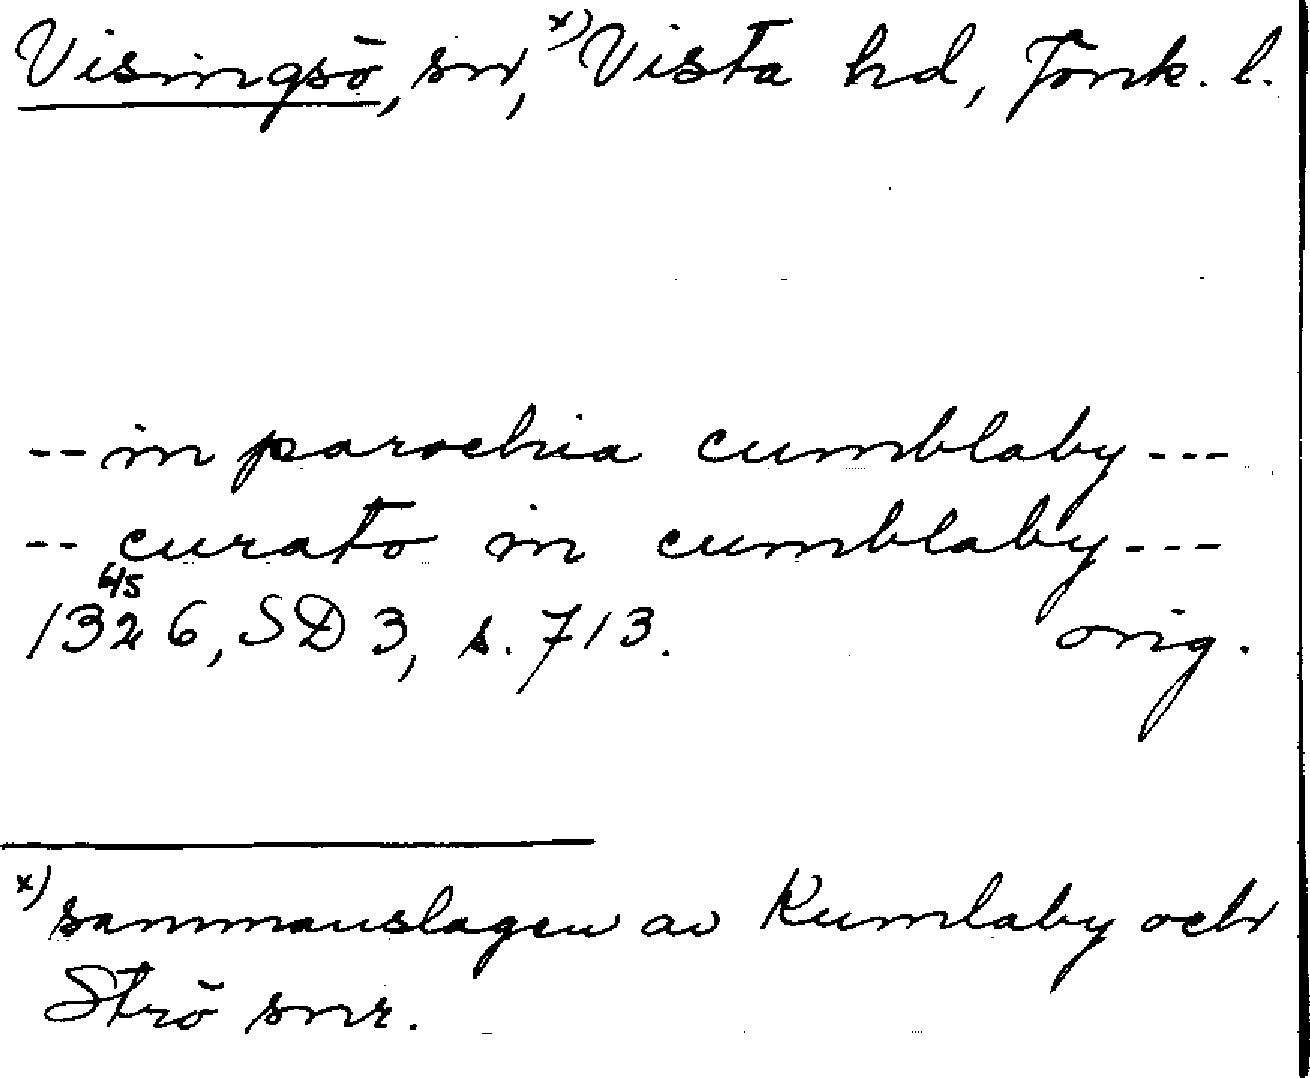 Visingsö, sn, x) Vista hd, Jönk. l.
-- in parochia cumblaby ---
-- curato in cumblaby ---
6/5
1326, SD 3, s. 713. orig.
x) sammanslagen av Kumlaby och
Strö snr.